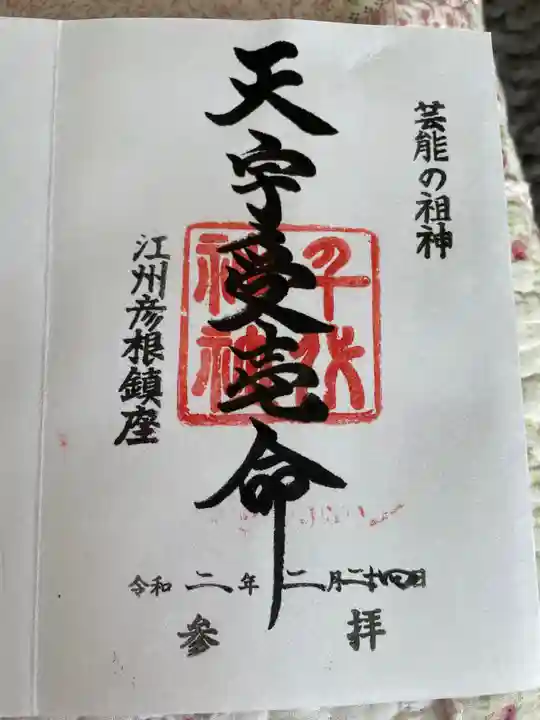 芸能の祖神
天宇受売命
千代神社
江州彦根鎮座
令和二年二月二十四日
参拝